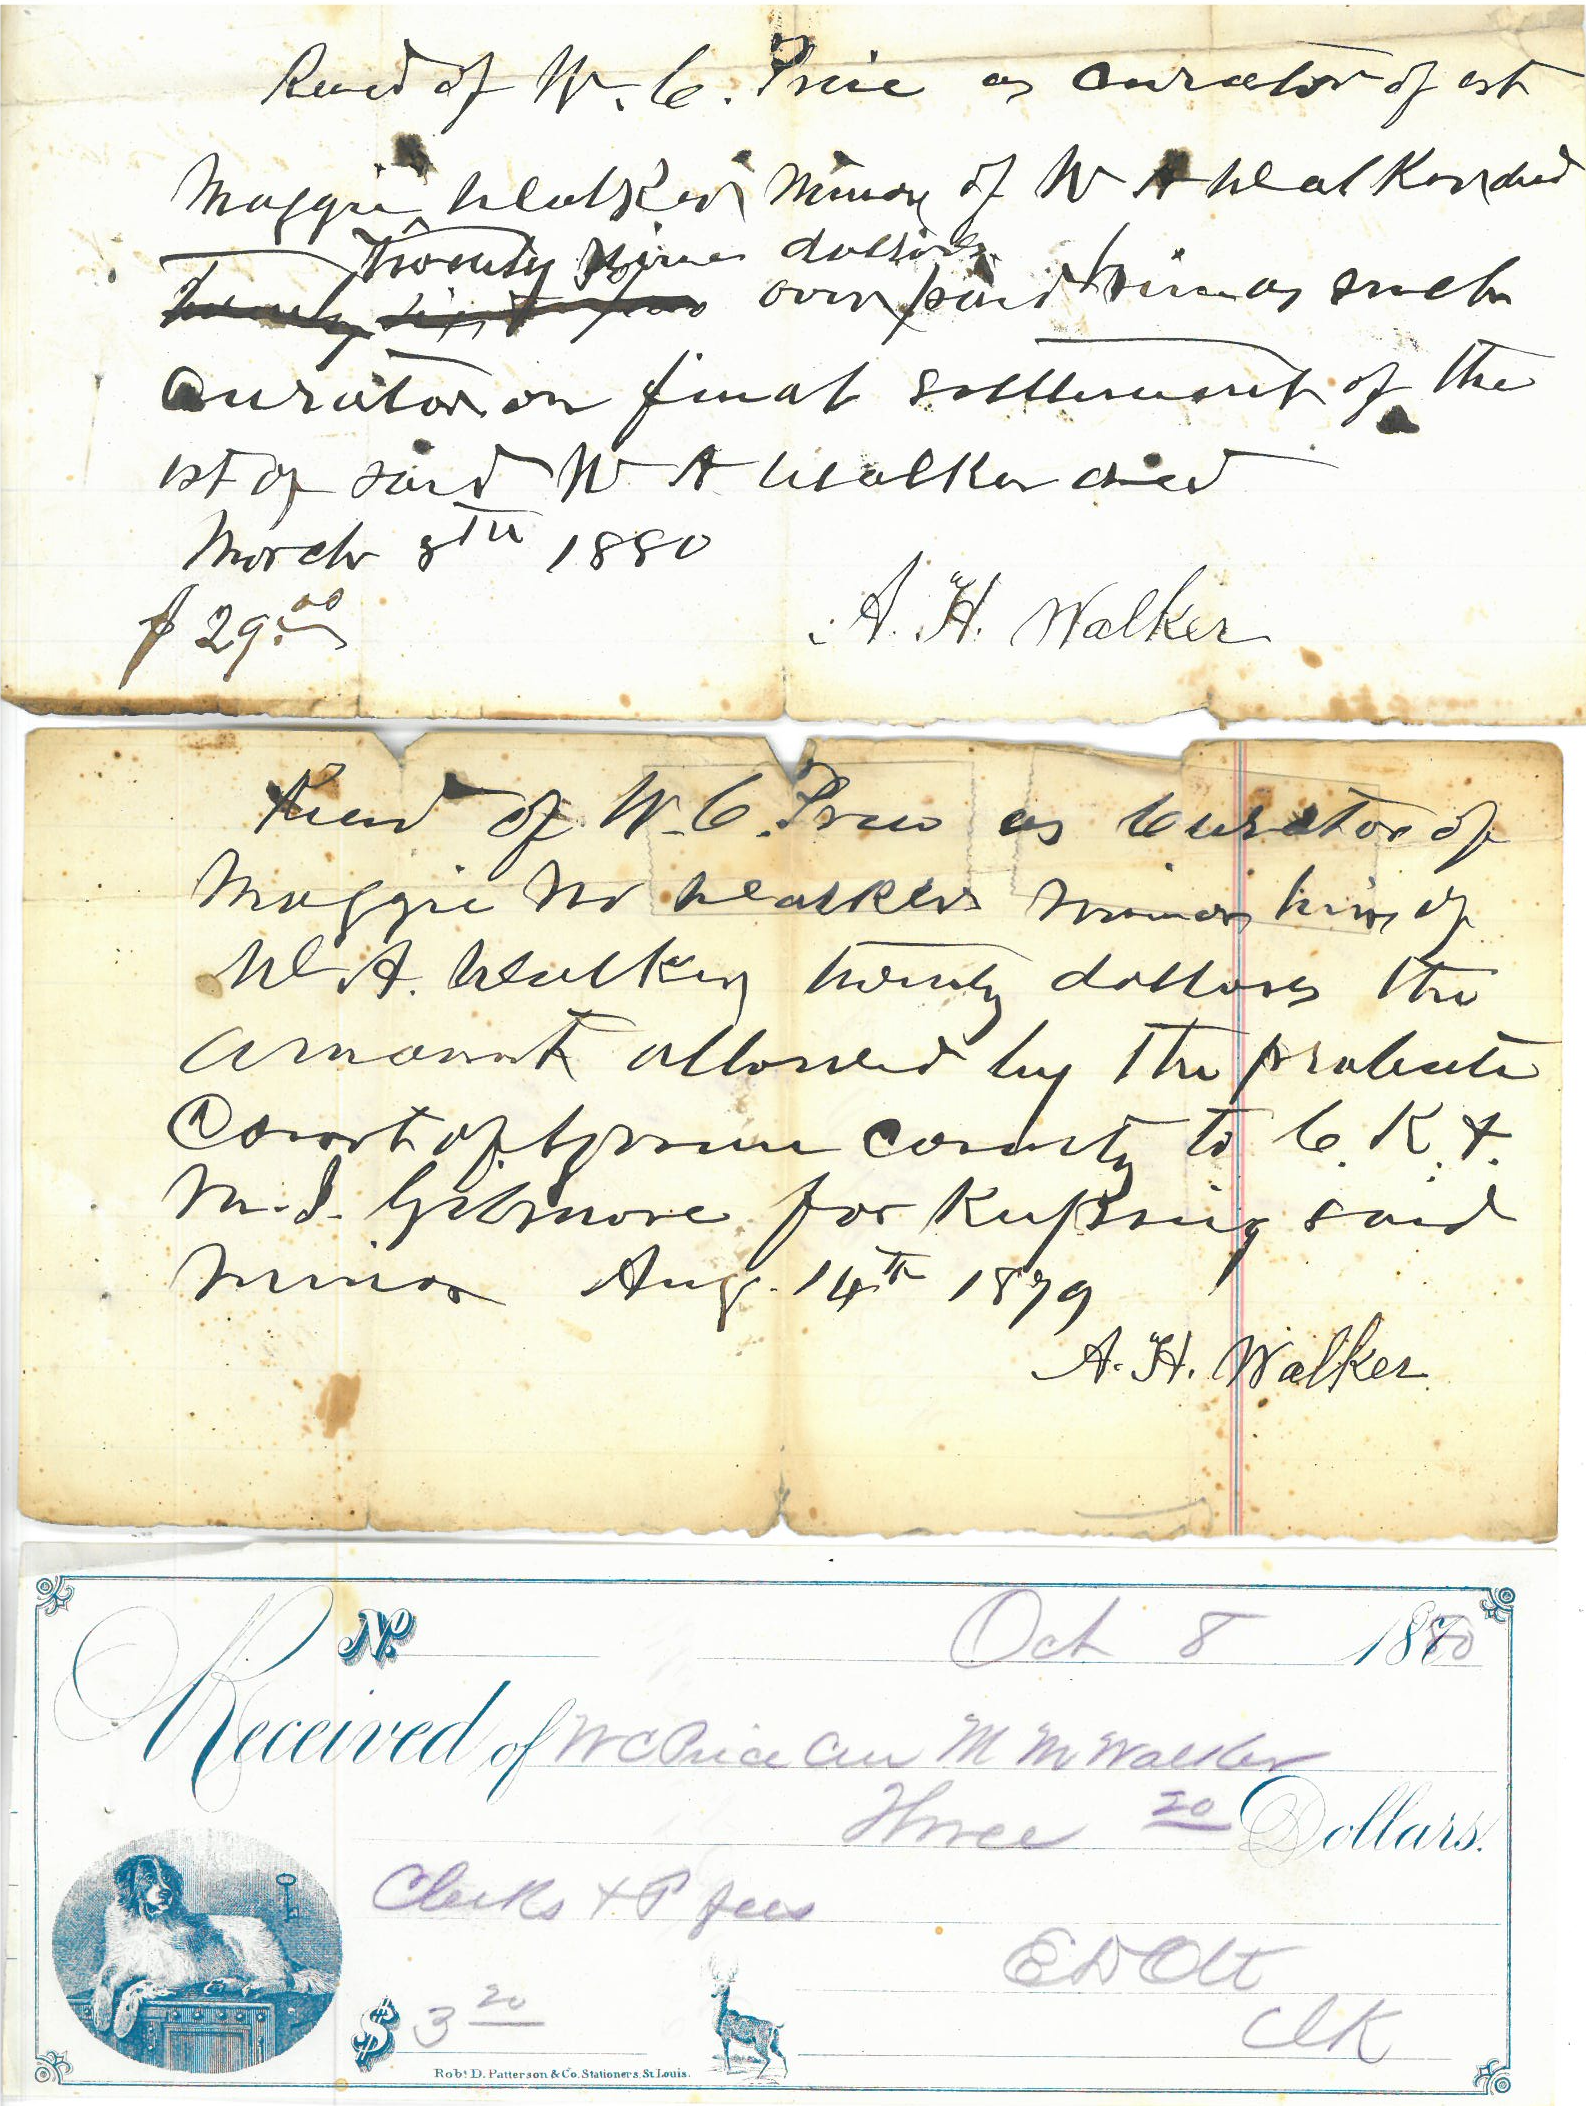 Recd of W. C. Price as curator of est
Maggie Walker Minor of W A Walker decd
twenty nine dollars
over paid him as such
curator on final settlement of the
est of said W A Walker decd
March 8TH 1880
$ 29.00
A. H. Walker
Recd of W. C. Price as Curator of
Maggie M Walker minor heir of
W. A. Walker twenty dollars the
amount allowed by the probate
Court of Greene County to C. K. &
M. J. Gilmore for Keeping said
Minor Aug. 14th 1879
A. H. Walker
No. Oct 8 1880
Received of W C Price Cur M M Walker
Three 20 Dollars.
Clerks & P fees
E D Ott
Clk
$ 3 20
Robt D. Patterson & Co. Stationers, St. Louis.